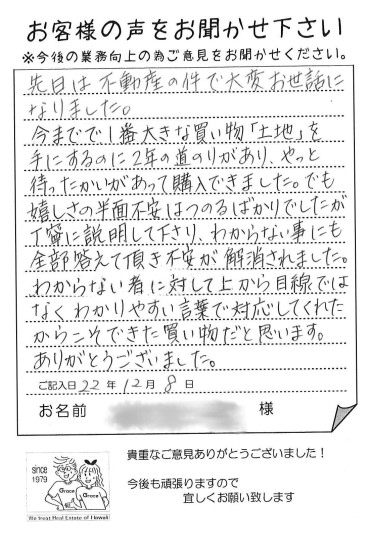 お客様の声をお聞かせ下さい
※今後の業務向上の為ご意見をお聞かせください。
先日は不動産の件で大変お世話に
なりました。
今までで1番大きな買い物「土地」を
手にするのに2年の道のりがあり、やっと
待ったかいがあって購入できました。でも
嬉しさの半面不安はつのるばかりでしたが
丁寧に説明して下さり、わからない事にも
全部答えて頂き不安が解消されました。
わからない者に対して上から目線では
なくわかりやすい言葉で対応してくれた
からこそできた買い物だと思います。
ありがとうございました。
ご記入日 22 年 12 月 8 日
お名前 様
貴重なご意見ありがとうございました！
今後も頑張りますので
宜しくお願い致します
since
1979
Grace
Grace
We treat Real Estate of Hawaii